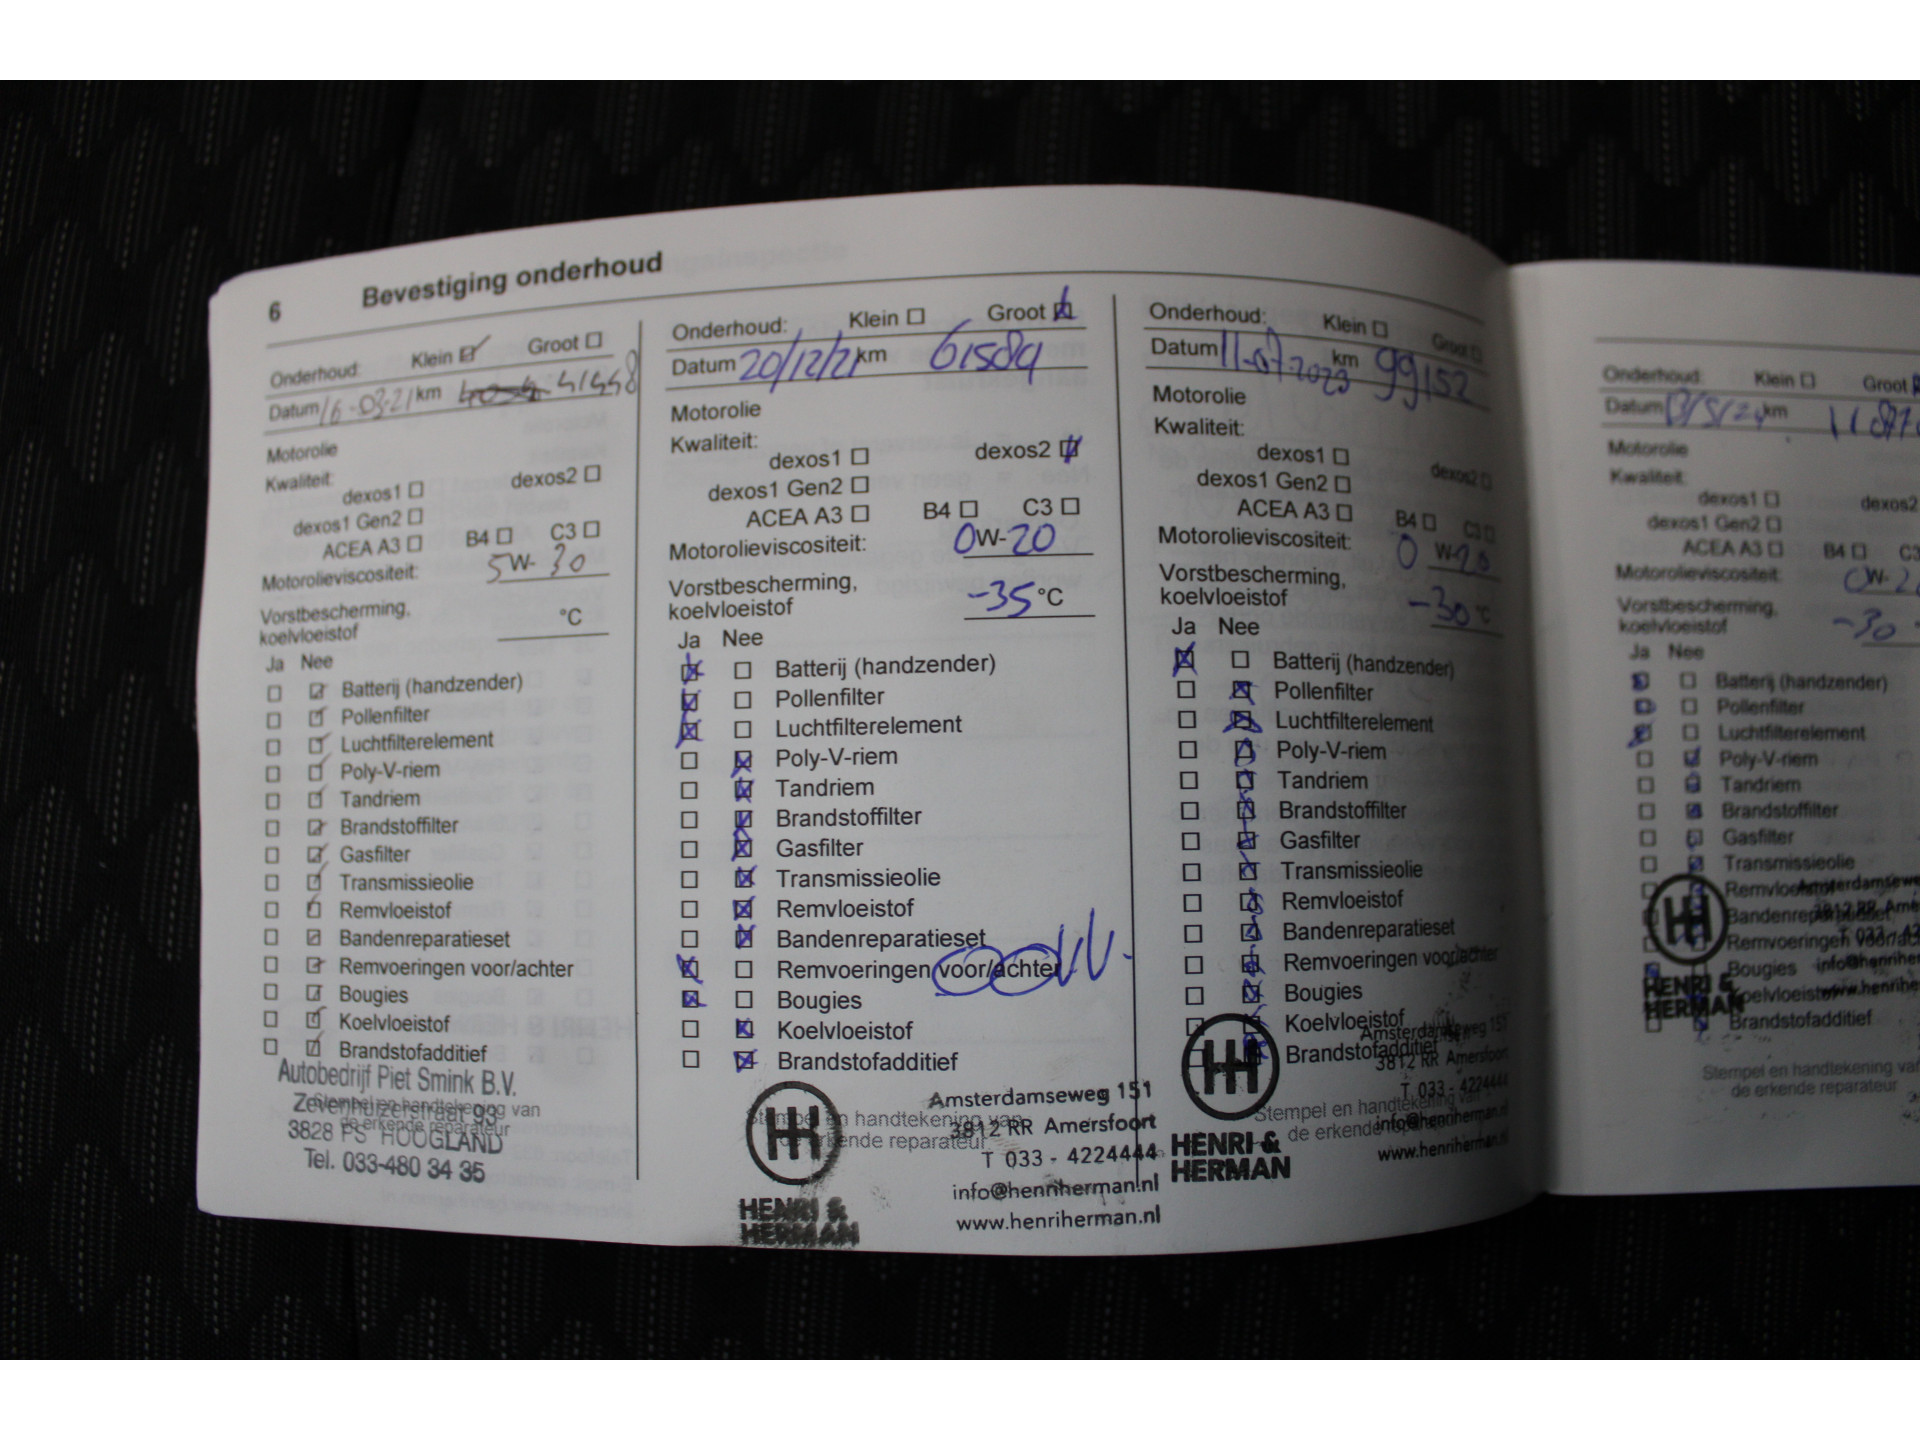 6 Bevestiging onderhoud
Onderhoud: Klein Groot
Datum 16-03-21 km 41448
Motorolie
Kwaliteit:
dexos1 dexos2
dexos1 Gen2
ACEA A3 B4 C3
Motorolieviscositeit: 5W-30
Vorstbescherming,
koelvloeistof °C
Ja Nee
Batterij (handzender)
Pollenfilter
Luchtfilterelement
Poly-V-riem
Tandriem
Brandstoffilter
Gasfilter
Transmissieolie
Remvloeistof
Bandenreparatieset
Remvoeringen voor/achter
Bougies
Koelvloeistof
Brandstofadditief
Stempel en handtekening van
de erkende reparateur
Autobedrijf Piet Smink B.V.
Zevenhuizerstraat 93
3828 PS HOOGLAND
Tel. 033-480 34 35
Onderhoud: Klein Groot
Datum 20/12/21 km 61589
Motorolie
Kwaliteit:
dexos1 dexos2
dexos1 Gen2
ACEA A3 B4 C3
Motorolieviscositeit: 0W-20
Vorstbescherming,
koelvloeistof -35 °C
Ja Nee
Batterij (handzender)
Pollenfilter
Luchtfilterelement
Poly-V-riem
Tandriem
Brandstoffilter
Gasfilter
Transmissieolie
Remvloeistof
Bandenreparatieset
Remvoeringen voor/achter
Bougies
Koelvloeistof
Brandstofadditief
Stempel en handtekening van
de erkende reparateur
HENRI &
HERMAN
Amsterdamseweg 151
3812 RR Amersfoort
T 033 - 4224444
info@henriherman.nl
www.henriherman.nl
Onderhoud: Klein Groot
Datum 11-07-2023 km 99152
Motorolie
Kwaliteit:
dexos1 dexos2
dexos1 Gen2
ACEA A3 B4 C3
Motorolieviscositeit: 0 W-20
Vorstbescherming,
koelvloeistof -30 °C
Ja Nee
Batterij (handzender)
Pollenfilter
Luchtfilterelement
Poly-V-riem
Tandriem
Brandstoffilter
Gasfilter
Transmissieolie
Remvloeistof
Bandenreparatieset
Remvoeringen voor/achter
Bougies
Koelvloeistof
Brandstofadditief
Stempel en handtekening van
de erkende reparateur
HENRI &
HERMAN
Amsterdamseweg 151
3812 RR Amersfoort
T 033 - 4224444
info@henriherman.nl
www.henriherman.nl
Onderhoud: Klein Groot
Datum km
Motorolie
Kwaliteit:
dexos1 dexos2
dexos1 Gen2
ACEA A3 B4 C3
Motorolieviscositeit: 0W-
Vorstbescherming,
koelvloeistof -30
Ja Nee
Batterij (handzender)
Pollenfilter
Luchtfilterelement
Poly-V-riem
Tandriem
Brandstoffilter
Gasfilter
Transmissieolie
Remvloeistof
Bandenreparatieset
Remvoeringen voor/ach
Bougies
Koelvloeistof
Brandstofadditief
Stempel en handtekening va
de erkende reparateur
HENRI &
HERMAN
Amsterdamsewe
3812 RR Amer
T 033 - 42
info@henrihe
www.henrihe